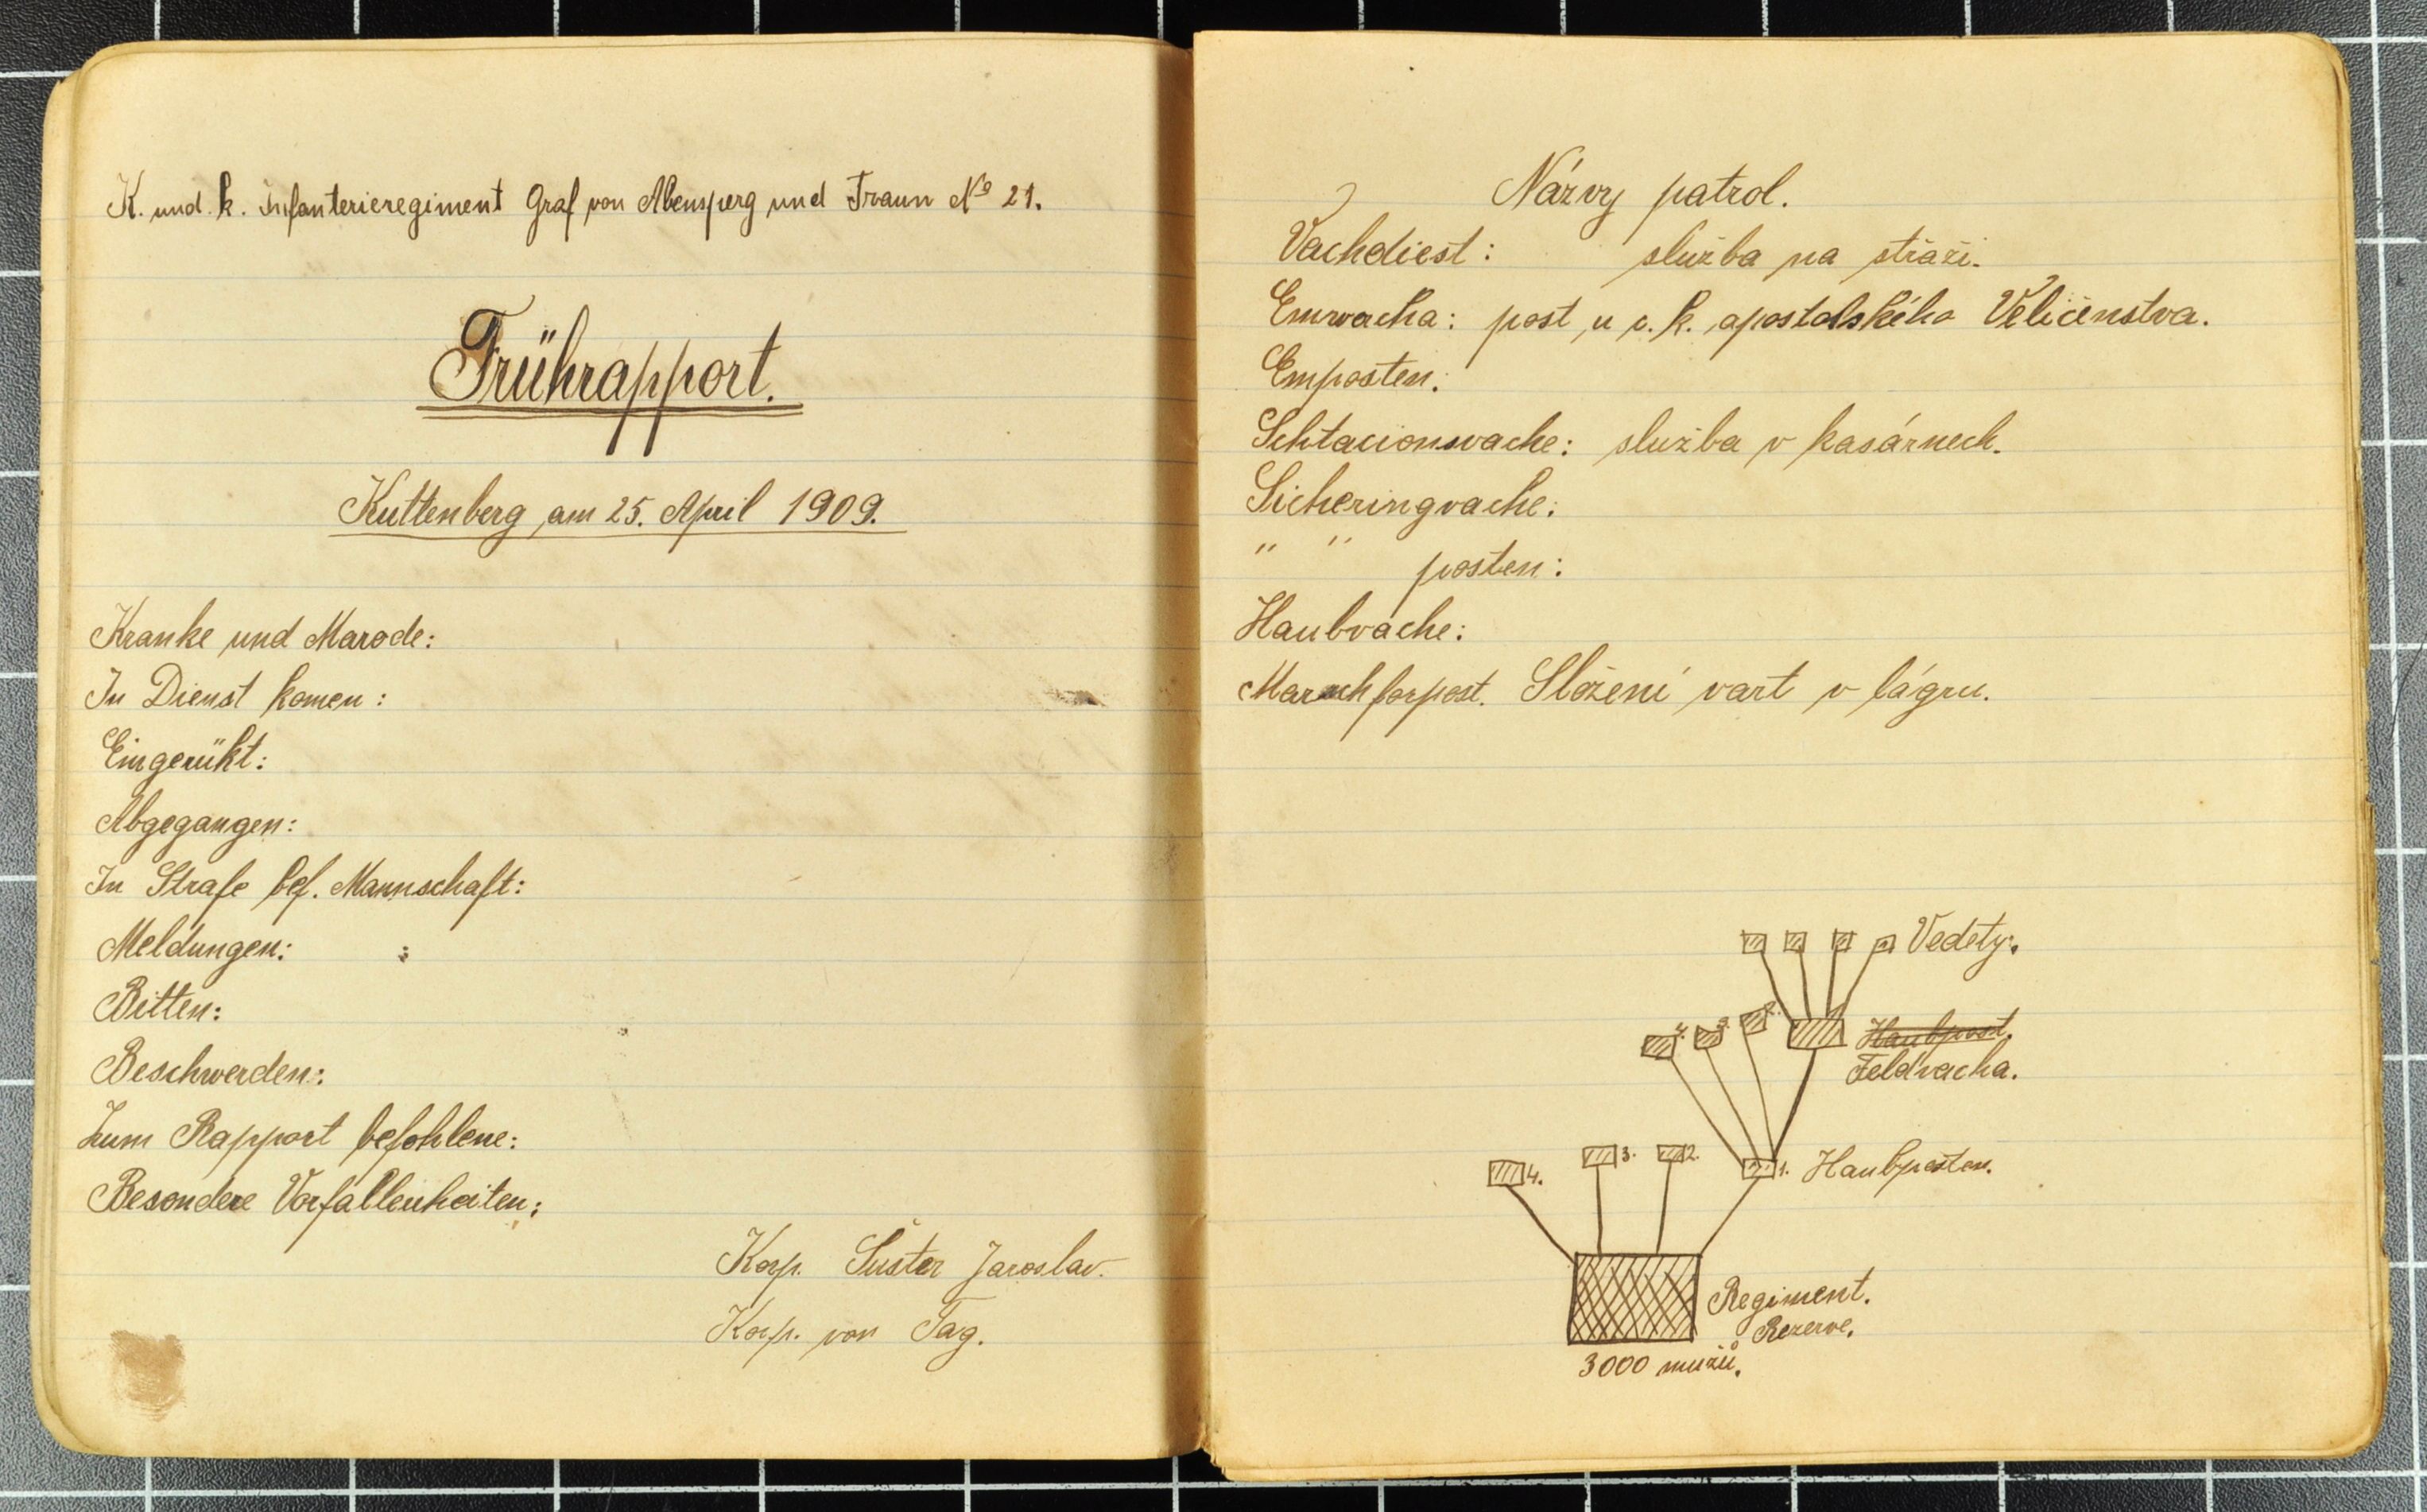 K. und. k. Infanterieregiment Graf von Abensperg und Traun No 21.
Frührapport.
Kuttenberg am 25. April 1909.
Kranke und Marode:
In Dienst komen:
Eingerükt:
Abgegangen:
In Strafe bef. Mannschaft:
Meldungen: :
Bitten:
Beschwerden:
Zum Rapport befohlene:
Besondere Vorfallenheiten:
Korp. Šuster Jaroslav.
Korp. von Tag.
Názvy patrol.
Vachdiest: služba na stráži.
Emvacha: post u c. k. apostolského Veličenstva.
Emposten:
Schtacionsvache: služba v kasárnech.
Sicheringvache:
" " posten:
Haubvache:
Marschforpost. Složení vart v lágru.
Vedety.
4. 3. 2. Haubpost.
Feldvacha.
4. 3. 2. 1. Haubposten.
Regiment.
Rezerve.
3000 mužů.